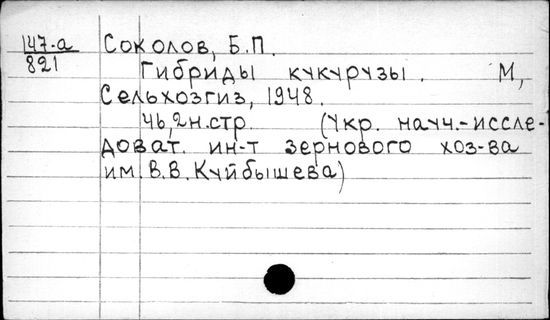 147-а Соколов, Б.П.
821
Гибриды кукурузы. М,
Сельхозгиз, 1948.
46,2н.стр. (Укр. научн.-иссле-
доват. ин-т зернового хоз-ва
им. В.В. Куйбышева)